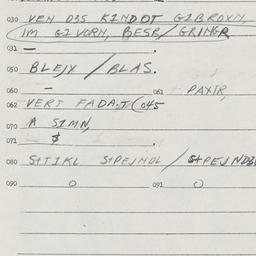 030 VEN O3S KINDOT GIBROXM,
IM GI VORM, BESR/GRINGR
031 — .
050 BLEJX / BLAS.
060 — 061 PAXIR,
062 VERT FADA.I (045
070 A SIMN,
071 $ .
080 S+TIKL S+PEJMOL / S+PEJND
090 0 091 0